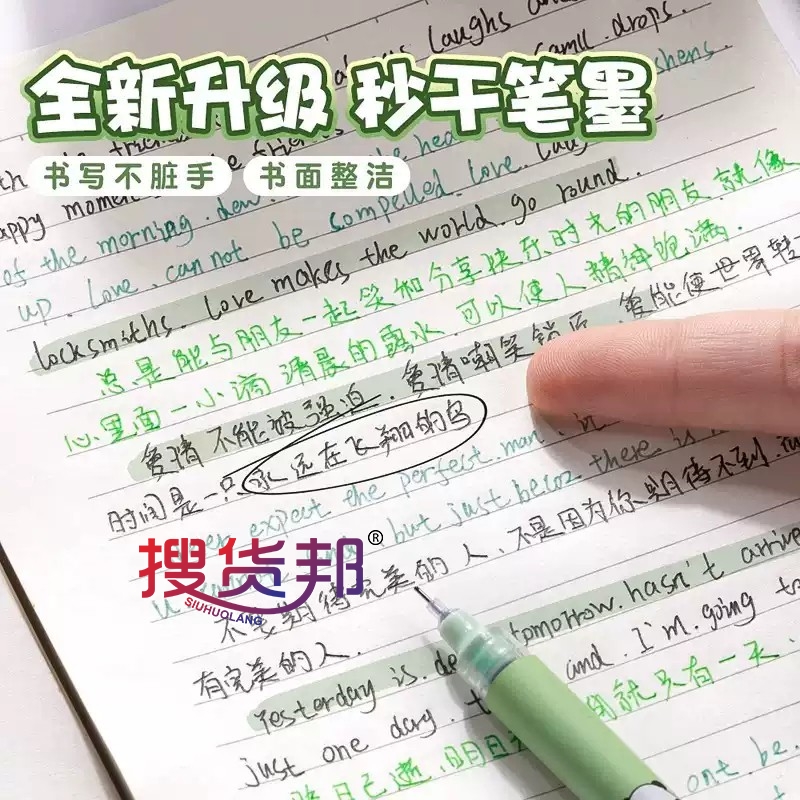 laughs an
全新升级 秒干笔墨
drops.
shens.
书写不脏手 书面整洁
appy momen
of the morning. dew
up. Love. cannot be compelled. Love. Laug
locksmiths. Love makes the world. go round.
总是能与朋友一起笑如分享快乐时光的朋友就像
心里面一小滴清晨的露水.可以使人精神饱满.
爱情不能被强迫.爱情嘲笑锁匠.爱能使世界转
时间是一只永远在飞翔的鸟
expect the perfect man.
but just becoz there is
搜货邦®
SIUHUOLANG
的人、不是因为你期待不到.
不要期待完美
有完美的人.
Yesterday is. de tomorrow. hasn't arrive
just one day. and. I'm. going to
就只有一天.
昨日已逝.明日
ont. be.